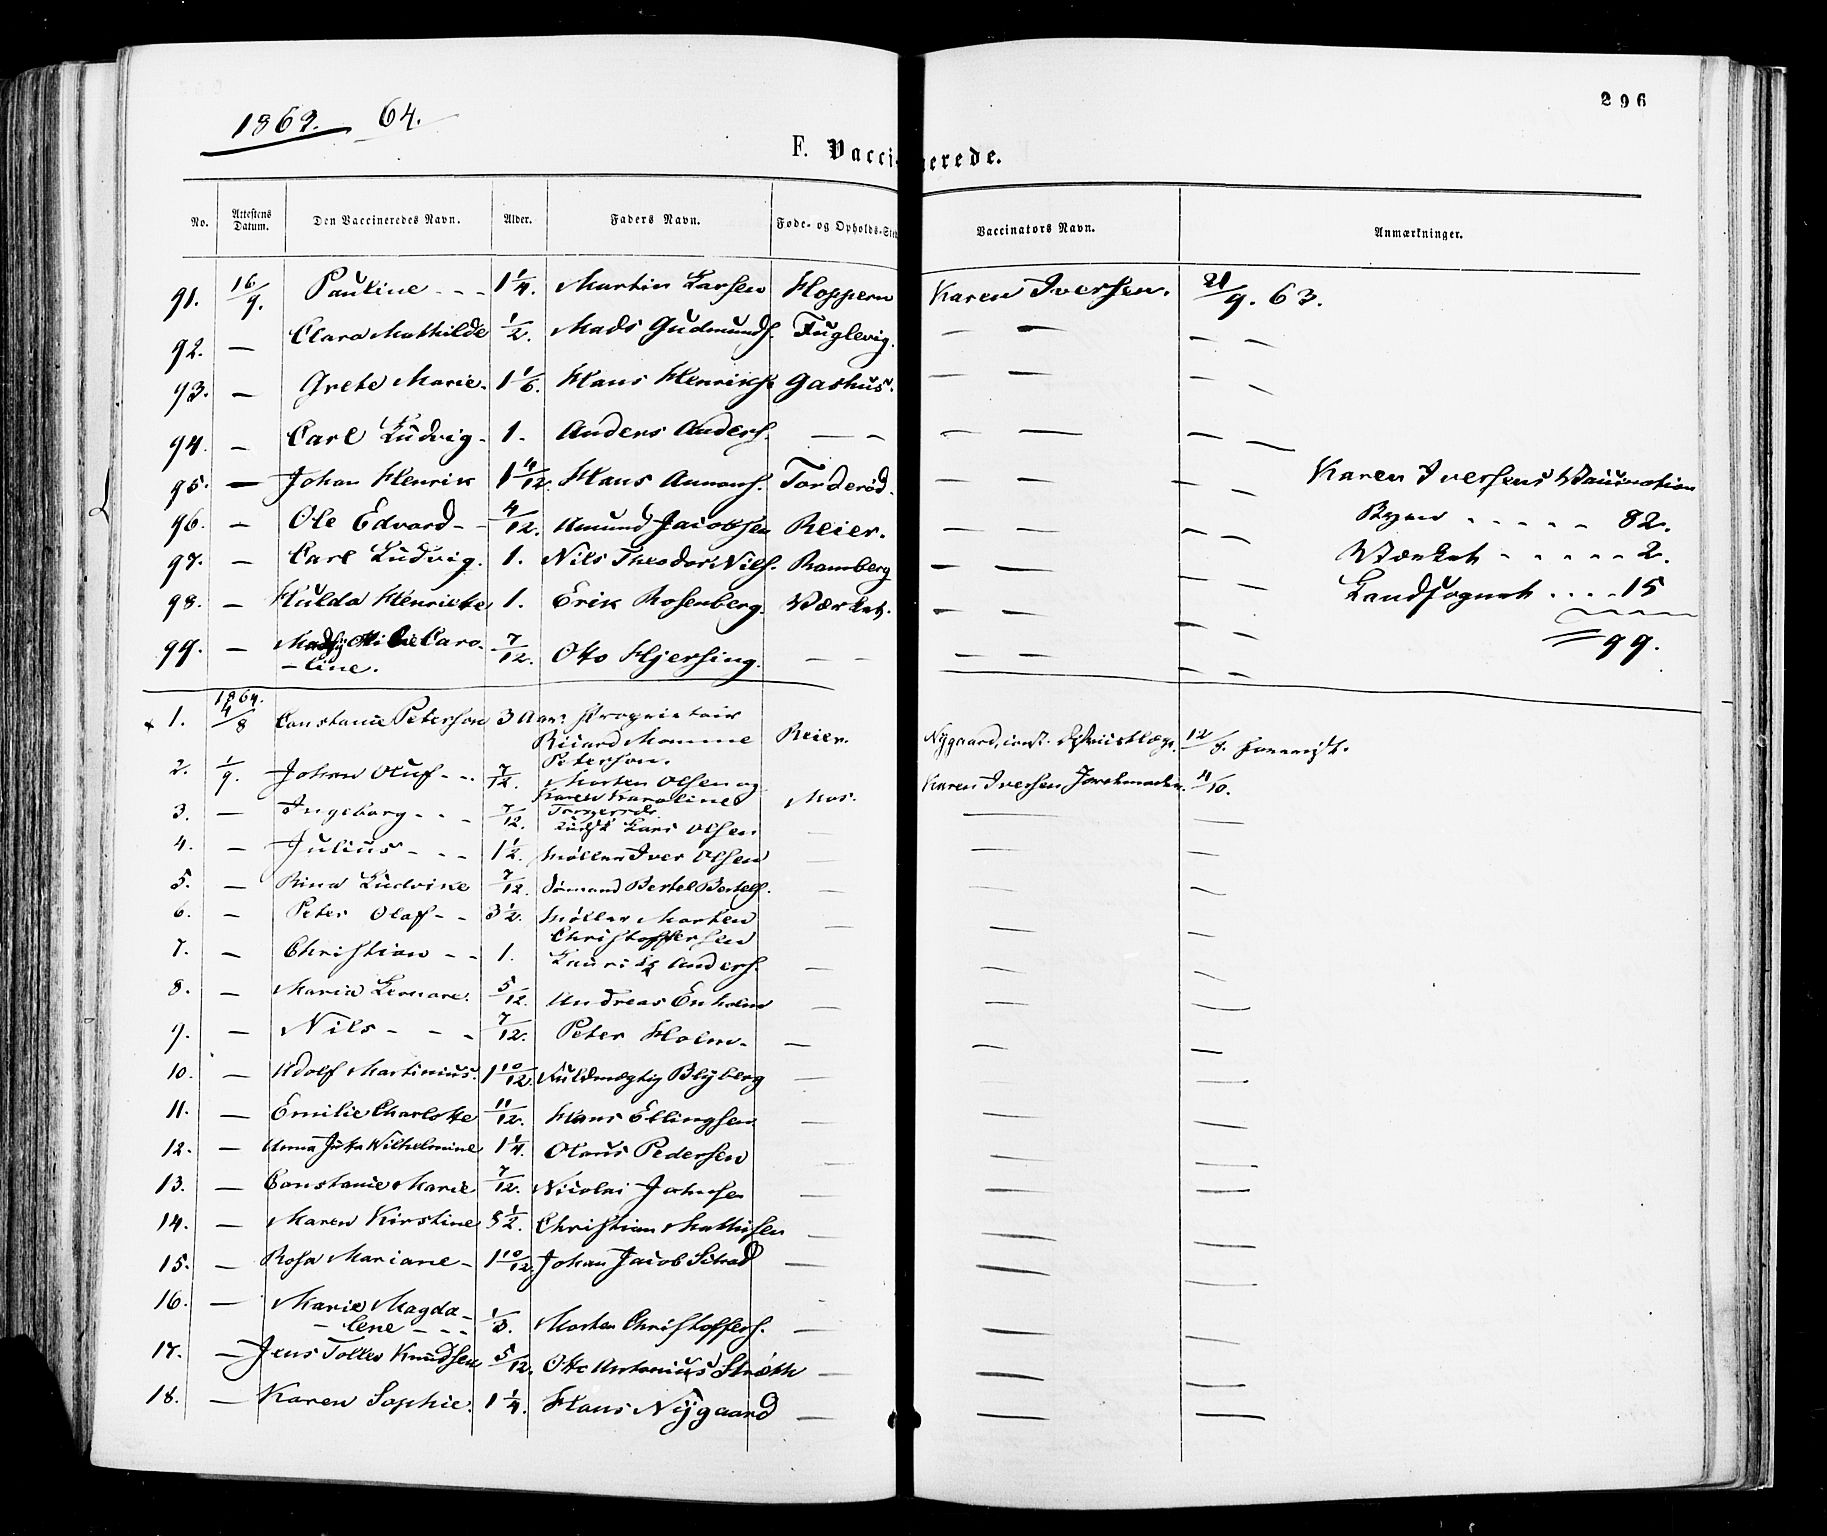 296
1863. 64.
F. Vaccinerede.
No. Attestens Datum. Den Vaccineredes Navn. Alder. Faders Navn. Føde- og Opholds-Sted Vaccinators Navn. Anmærkninger.
91. 16/9. Pauline - - - 1 1/4. Martin Larsen Hoppern Karen Iversen. 21/9. 63.
92. — Clara Mathilde 1/2. Mads Gudmunds. Fuglevig. — — — —
93. — Grete Marie. 1 1/6. Hans Henriks. Gashus. — — — —
94. — Carl Ludvig - 1. Anders Anders. — — — — — —
95. — Johan Henrik 1 4/12. Hans Amans. Torderød. — — — — Karen Iversens Vaccination
96. — Ole Edvard - - 4/12. Amund Jacobsen Reier. — — — — Byen - - - - - 82.
97. — Carl Ludvig. 1. Nils Theodor Nils. Ramberg — — — — Værket - - - - - 2.
98. — Hulda Henriette 1. Erik Rosenberg. Værket. — — — — Landsognet - - - - 15
99. — Caro- 7/12. Otto Hjersing. — — — — — — 99.
- line.
1864.
1. 4/8 Constance Peterson 3 Aar. Proprietair
Ricard Momme Reier. Nygaard, const. 12/8.
Peterson.
2. 1/9. Johan Oluf - - 7/12. Morten Olsen og Mos. Karen Iversen Jordemoder. 11/10.
Karen Karoline
3. — Ingeborg - - - 7/12. Lars Olsen — — —
4. — Julius - - - 1 1/2. Møller Iver Olsen — — —
5. — Rina Ludvike 7/12. Sömand Bertel Bertels. — — —
6. — Peter Olaf - - 3 1/2. Møller Morten — — —
Christoffersen
7. — Christian - - 1. Lauritz Anders. — — —
8. — Maria Lenore. 5/12. Andreas Enholm — — —
9. — Nils - - - 7/12. Peter Holm. — — —
10. — Adolf Martinius. 1 10/12. Fuldmægtig Blyberg — — —
11. — Emilie Charlotte 11/12. Hans Ellingsen — — —
12. — Anna Juta Wilhelmine 1 1/4. Olaus Pedersen — — —
13. — Constance Marie 7/12. Nicolai Johnsen — — —
14. — Maren Kirstine 5 1/2. Christian Mathisen — — —
15. — Rosa Mariane - 1 10/12. Johan Jacob — — —
16. — Marie Magda-
- lene - - - 1/3. Morten Christoffers. — — —
17. — Jens Tolles Knudsen 5/12. Otto Antonius — — —
18. — Karen Sophie. 1 1/4. Hans Nygaard — — —